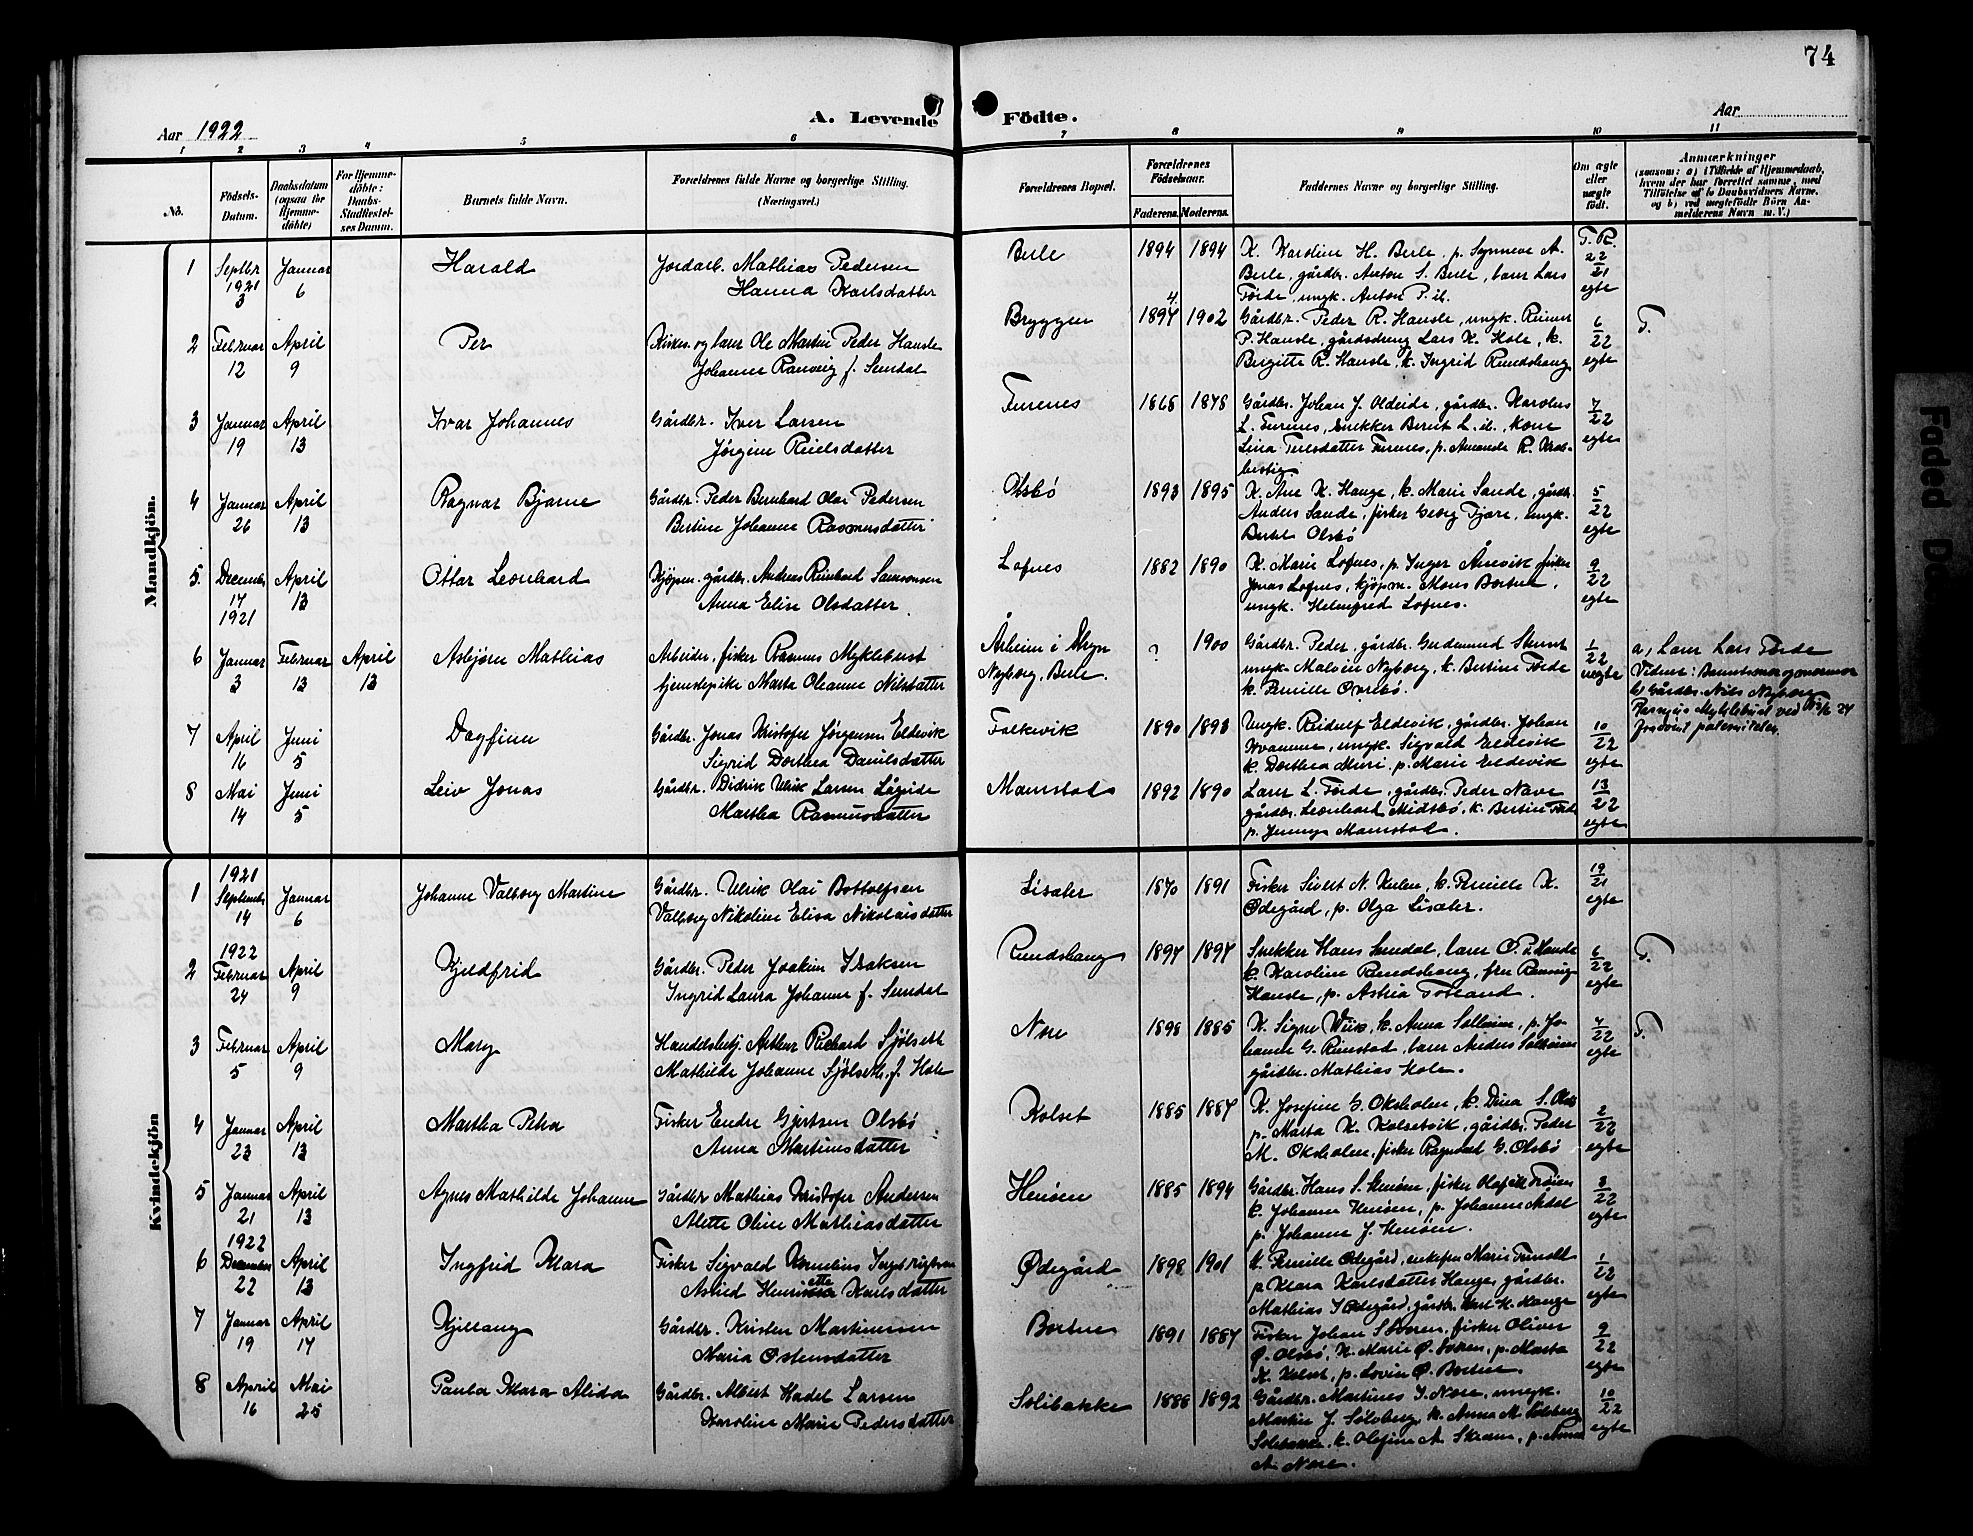 74
Aar 1922
A. Levende Födte.
Aar
1 2 3 4 5 6 7 8 9 10 11
No.
Födsels-Datum.
Daabsdatum (ogsaa for Hjemme-döbte)
For Hjemme-döbte: Daabs-Stadfæstelses Datum.
Barnets fulde Navn.
Forældrenes fulde Navne og borgerlige Stilling. (Næringsvei.)
Forældrenes Bopæl.
Forældrenes Födselsaar.
Faderens. Moderens.
Faddernes Navne og borgerlige Stilling.
Om ægte eller uægte födt.
Anmærkninger
(saasom: a) i Tilfælde af Hjemmedaab,
hvem der har forrettet samme, med
Tilföielse af to Daabsvidners Navne,
og b) ved uægtefödte Börn An-
melderens Navn m. V.)
Mandkjön.
1 Septbr 1921 3 Januar 6 Harald Jordarb. Mathias Pedersen
Hanna Karlsdatter
Berle 1894 1894 K. Karoline H. Berle, p. Synneve A.
Berle, gårdbr. Anton S. Berle, lærer Lars
Førde, ungk. Anton P. ib.
F. R. 22/21 egte
2 Februar 12 April 9 Per Kirkes. og lærer Ole Martin Peder Hansle
Johanne Ranveig f. Sundal
Bryggen 1894 1902 Gårdbr. Peder R. Hansle, ungk. Reimer
P. Hansle, gårdsdreng Lars K. Hole, k.
Brigitte R. Hansle, k. Ingrid Rundshaug
6/22 egte F.
3 Januar 19 April 13 Ivar Johannes Gårdbr. Iver Larsen
Jørgine Reielsdatter
Furenes 1865 1878 Gårdbr. Johan J. Oldeide, gårdbr. Karolus
L. Furenes, snekker Bernt L. ib., kone
Lina Terlsdatter Furenes, p. Amanda R.
7/22 egte
4 Januar 26 April 13 Ragnar Bjarne Gårdbr. Peder Bernhard Olai Pedersen
Bertine Johanne Rasmusdatter
Olsbø 1893 1895 K. Ane K. Hauge, k. Marie Sande, gårdbr.
Anders Sande, fisker Georg Fjære, ungk.
Bertel Olsbø
5/22 egte
5. December 17 1921 April 13 Ottar Leonhard Kjøpm. gårdbr. Andreas Reinhard Samsonsen
Anna Elise Olsdatter.
Lofnes 1882 1890 K. Marie Lofnes, p. Inger Årsvik fisker
Jonas Lofnes, kjøpm. Mons Bortne,
ungk. Helmfred Lofnes.
9/22 egte
6 Januar 3 Februar 13 April 13 Asbjørn Mathias Arbeider, fisker Rasmus Myklebust
tjenestepike Marta Oleanne Nilsdatter
Årheim i Stryn
Nyborg, Berle.
? 1900 Gårdbr. Peder, gårdbr. Gudemund Stennt
ungk. Malvin Nyborg, k. Bertine Førde
k. Pernille Øvrebø.
1/22 uegte a, Lærer Lars Førde
Vidner: Barnets mor og mormor
b, Gårdbr. Nils Nyborg
Rasmus Myklebust ved
idømt paterniteten.
7 April 16 Juni 5 Dagfinn Gårdbr. Jonas Kristofer Jørgensen Eldevik
Sigrid Dorthea Danielsdatter
Falkevik 1890 1893 Ungk. Reidulf Eldevik, gårdbr. Johan
Kvamme, ungk. Sigvald Eldevik
k. Dorthea Muri, p. Marie Eldevik
10/22 egte
8 Mai 14 Juni 5 Leiv Jonas Gårdbr. Didrik Ulrik Larsen Lågeide
Martha Rasmusdatter
Maurstad 1892 1890 Lærer L. Førde, gårdbr. Peder Nave
gårdbr. Leonhard Midtbø, k. Bertine Førde
p. Jenny Maurstad.
13/22 egte
Kvindekjön
1 1921 September 14 Januar 6 Johanne Valborg Martine Gårdbr. Ulrik Olai Bottolfsen
Valborg Nikoline Elisa Nikolaisdatter
Lisæter 1870 1891 Fisker Sivert N. Hulen, k. Pernille K.
Ødegård, p. Olga Lisæter.
19/21 egte
2 1922 Februar 24 April 9 Kjeldfrid Gårdbr. Peder Joakim Isaksen
Ingrid Laura Johanne f. Sundal
Rundshaug 1897 1897 Snekker Hans Sundal, lærer O. P. Hansle
k. Karoline Rundshaug, fru Ranveig
Hansle, p. Astria Totland.
6/22 egte F.
3 Februar 5 April 9 Mary Handelsbetj. Arthur Richard Sjölseth
Mathilde Johanne Sjölseth, f. Hole
Nore 1898 1885 K. Signe Wiik, k. Anna Solheim, p. Jo-
hanne G. Rimstad, lærer Anders Solheim
gårdbr. Mathias Hole.
4/22 egte F.
4 Januar 23 April 13 Martha Petra Fisker Endre Gjertsen Olsbø
Anna Martinusdatter
Kolset 1885 1887 K. Josefine G. Oksholen, k. Dina S. Olsbø
p. Marta K. Kolsetvik, gårdbr. Peder
M. Oksholen, fisker Ragnvald G. Olsbø
2/22 egte
5 Januar 21 April 13 Agnes Mathilde Johanne Gårdbr Mathias Kristofer Andersen
Alette Oline Mathiasdatter
Henöen 1885 1894 Gårdbr. Hans S. Henöen, fisker Olaf
k. Johanne Henöen, p. Johanne
p. Johanne J. Henöen.
3/22 egte
6 1922 December 22 April 13 Ingfrid Klara Fisker Sigvald Kornelius Ingebrigtsen
Astrid Henriette Karlsdatter
Ødegård 1898 1901 k. Pernille Ødegård, enkefru Marie
p Klara Karlsdatter Hauge, gårdbr.
Mathias I Ødegård, gårdbr. Karl K. Hauge
1/22 egte
7 Januar 19 April 17 Kjellaug Gårdbr. Kristen Martinussen
Maria Ostensdatter
Bortne 1891 1887 Fisker Johan Sövren, fisker Oliver
Ø. Olsbø, K. Marie Ø. p. Marta
K. Kolset, p. Lovise Ø. Bortne
9/22 egte
8 April 16 Mai 25 Paula Klara Alida Gårdbr. Albert Kadel Larsen
Karoline Marie Pedersdatter
Solibakke 1888 1892 Gårdbr. Martines I. Nore, ungk.
Martin J. Sölvberg, k. Anna M. Sölvberg
k. Olefine A. p. Anna
A. Nore.
10/22 egte